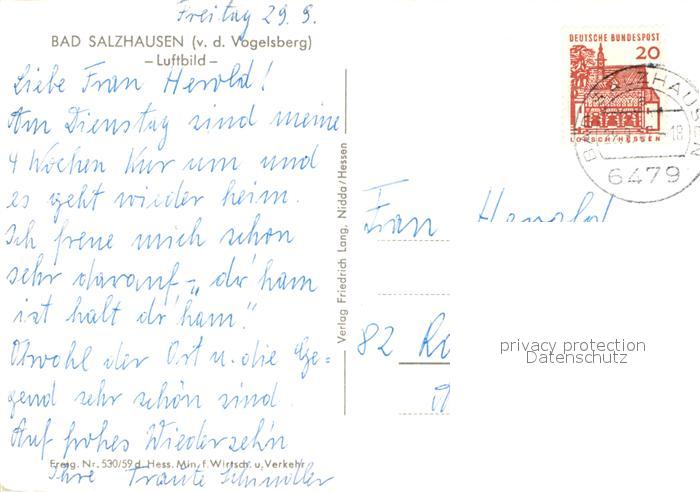 Freitag 29. 9.
BAD SALZHAUSEN (v. d. Vogelsberg)
– Luftbild –
Liebe Frau Herold!
Am Dienstag sind meine
4 Wochen Kur um und
es geht wieder heim.
Ich freue mich schon
sehr darauf - „dr'ham
ist halt dr'ham."
Obwohl der Ort u. die Ge=
gend sehr schön sind.
Auf frohes Wiederseh'n
Freig. Nr. 530/59 d. Hess. Min. f. Wirtsch. u. Verkehr
Ihre Traute Schindler
Verlag Friedrich Lang, Nidda/Hessen
DEUTSCHE BUNDESPOST
20
LORSCH/HESSEN
BAD SALZHAUSEN
18
6479
Frau Herold
82
privacy protection
Datenschutz